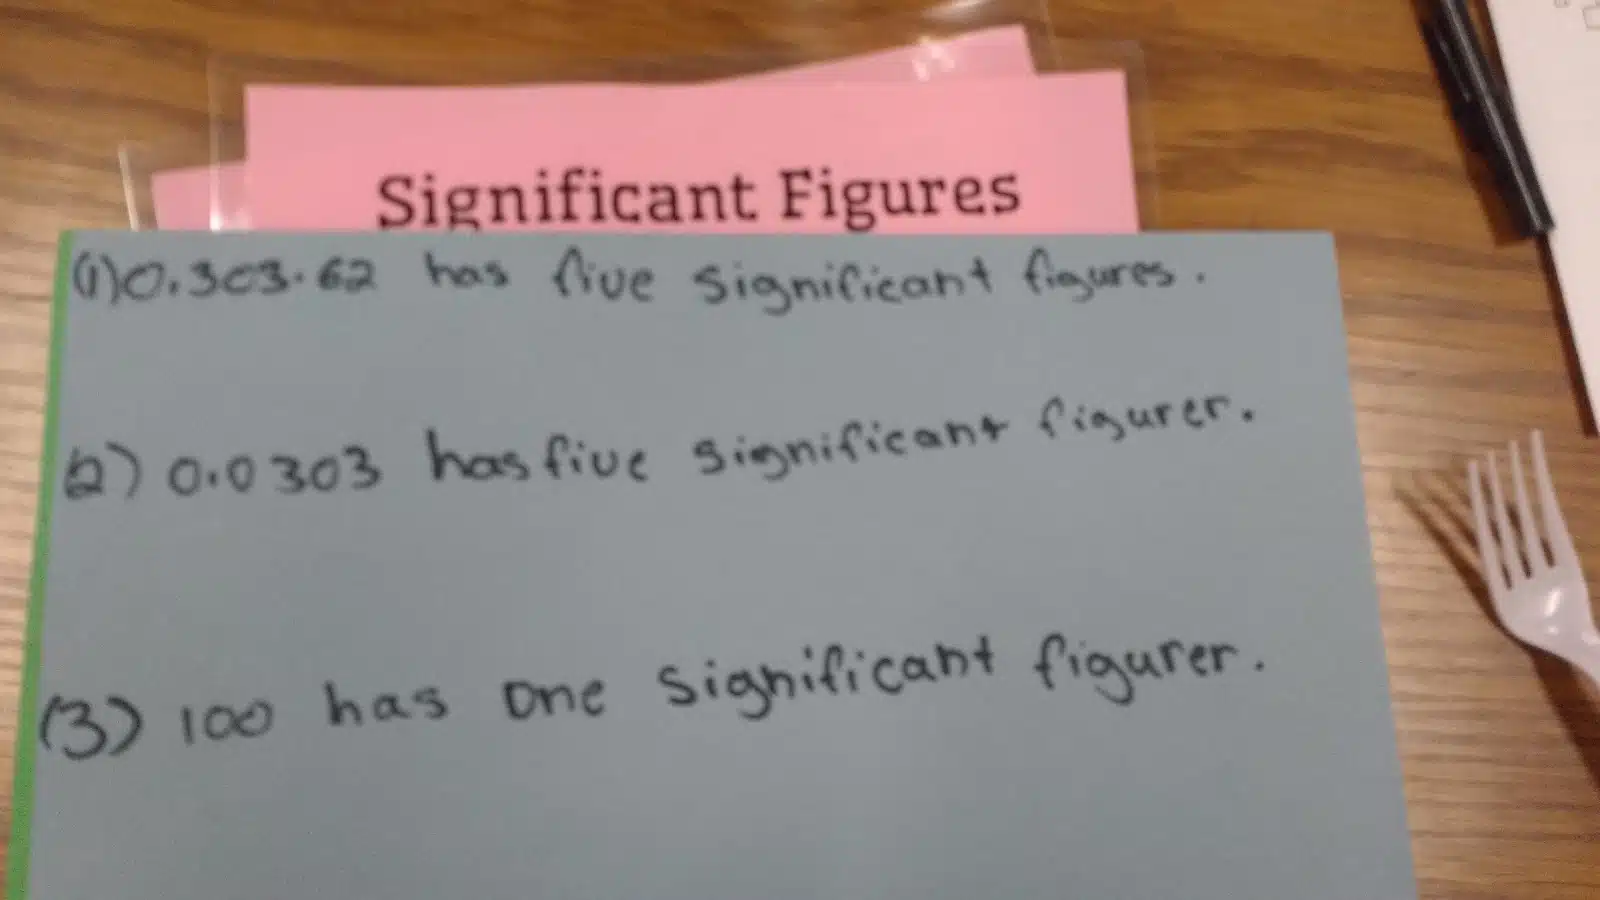 Significant Figures
(1) 0.303.62 has five significant figures.
(2) 0.0303 has five significant figurer.
(3) 100 has one significant figurer.